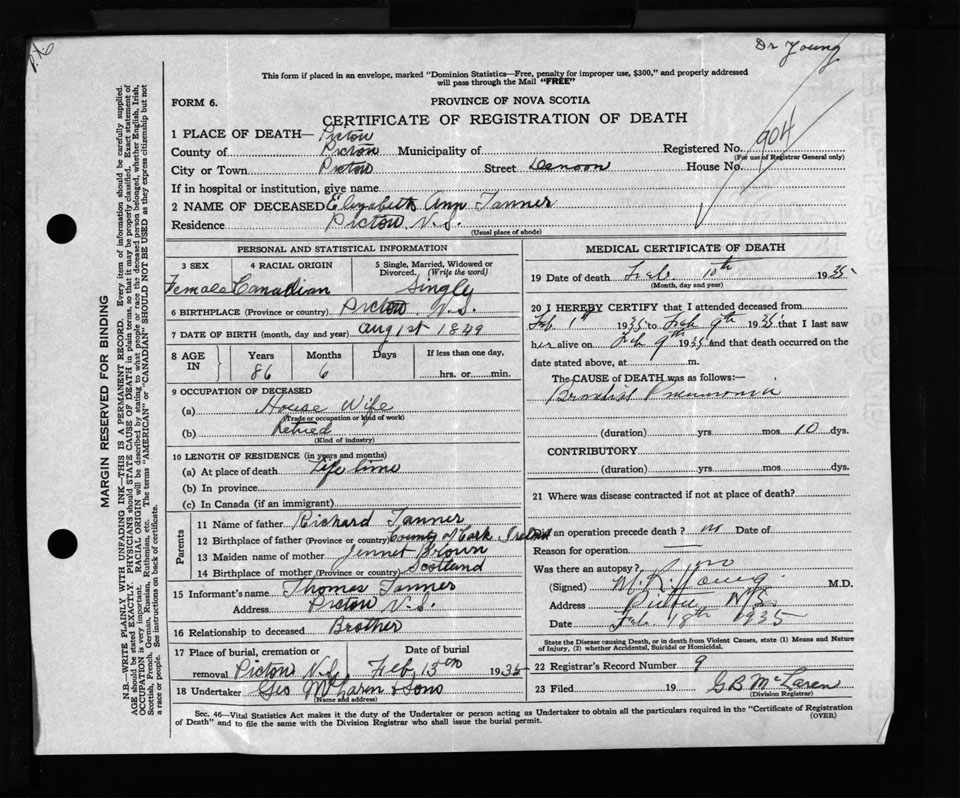 Dr Young
This form if placed in an envelope, marked "Dominion Statistics—Free, penalty for improper use, $300," and properly addressed
will pass through the Mail "FREE"
FORM 6.
PROVINCE OF NOVA SCOTIA
CERTIFICATE OF REGISTRATION OF DEATH
904
1 PLACE OF DEATH— Pictou
County of Pictou Municipality of Registered No.
(For use of Registrar General only)
City or Town Pictou Street Denoon House No.
If in hospital or institution, give name
2 NAME OF DECEASED Elizabeth Ann Tanner
Residence Pictou N.S.
(Usual place of abode)
PERSONAL AND STATISTICAL INFORMATION
3 SEX 4 RACIAL ORIGIN 5 Single, Married, Widowed or
Divorced. (Write the word)
Female Canadian Singly
6 BIRTHPLACE (Province or country) Pictou N.S.
7 DATE OF BIRTH (month, day and year) Aug 1st 1849
8 AGE IN Years Months Days If less than one day,
86 6 hrs. or min.
9 OCCUPATION OF DECEASED
(a) House Wife
(Trade or occupation or kind of work)
(b) Retried
(Kind of industry)
10 LENGTH OF RESIDENCE (in years and months)
(a) At place of death Life time
(b) In province
(c) In Canada (if an immigrant)
Parents
11 Name of father Richard Tanner
12 Birthplace of father (Province or country) County of Cork Ireland
13 Maiden name of mother Jennet Brown
14 Birthplace of mother (Province or country) Scotland
15 Informant's name Thomas Tanner
Address Pictou N.S.
16 Relationship to deceased Brother
17 Place of burial, cremation or Date of burial
removal Pictou N.S. Feb 13th 1935
18 Undertaker Geo McLaren & Sons
(Name and address)
MEDICAL CERTIFICATE OF DEATH
19 Date of death Feb. 10th 1935
(Month, day and year)
20 I HEREBY CERTIFY that I attended deceased from
Feb 1st 1935 to Feb 9th 1935 that I last saw
her alive on Feb 9th 1935 and that death occurred on the
date stated above, at m.
The CAUSE OF DEATH was as follows:—
Pneumonia
(duration) yrs mos 10 dys.
CONTRIBUTORY
(duration) yrs. mos. dys.
21 Where was disease contracted if not at place of death?
Did an operation precede death? no Date of
Reason for operation —
Was there an autopsy? no
(Signed) M.R. Young M.D.
Address Pictou N.S.
Date Feb. 18th 1935
State the Disease causing Death, or in death from Violent Causes, state (1) Means and Nature
of Injury, (2) whether Accidental, Suicidal or Homicidal.
22 Registrar's Record Number 9
23 Filed 19 G B McLaren
(Division Registrar)
Sec. 46—Vital Statistics Act makes it the duty of the Undertaker or person acting as Undertaker to obtain all the particulars required in the "Certificate of Registration
of Death" and to file the same with the Division Registrar who shall issue the burial permit. (OVER)
MARGIN RESERVED FOR BINDING
N.B.—WRITE PLAINLY WITH UNFADING INK—THIS IS A PERMANENT RECORD. Every item of information should be carefully supplied.
AGE should be stated EXACTLY. PHYSICIANS should STATE CAUSE OF DEATH in plain terms, so that it may be properly classified. Exact statement of
OCCUPATION is very important. RACIAL ORIGIN will be described by stating to what people or race the deceased person belonged, whether English, Irish,
Scottish, French, German, Russian, Ruthenian, etc. The terms "AMERICAN" or "CANADIAN" SHOULD NOT BE USED as they express citizenship but not
a race or people. See instructions on back of certificate.